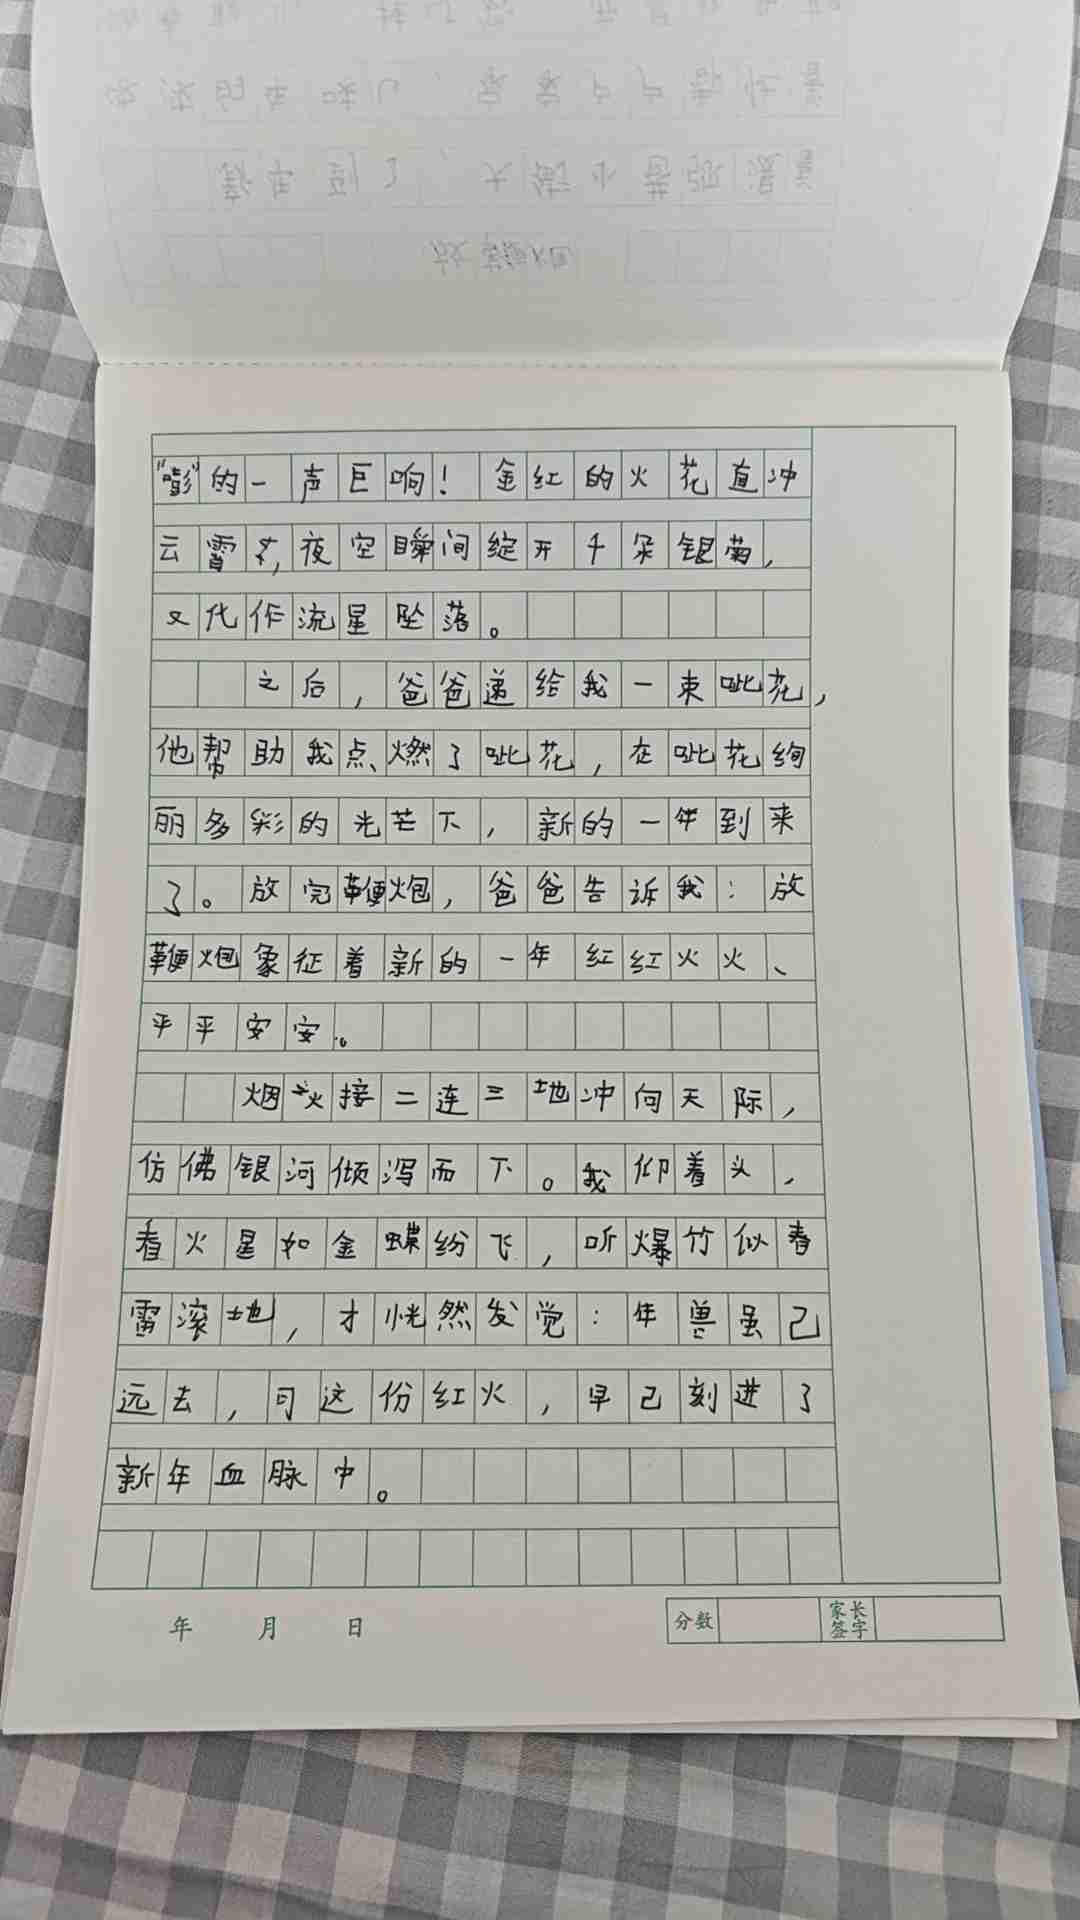 放鞭炮
新年到了，大街小巷弥漫着
浓浓的年味儿，家家户户都忙着
“嘭”的一声巨响！金红的火花直冲
云霄，夜空瞬间绽开千朵银菊，
又化作流星坠落。
之后，爸爸递给我一束呲花，
他帮助我点燃了呲花，在呲花绚
丽多彩的光芒下，新的一年到来
了。放完鞭炮，爸爸告诉我：放
鞭炮象征着新的一年红红火火、
平平安安。
烟火接二连三地冲向天际，
仿佛银河倾泻而下。我仰着头，
看火星如金蝶纷飞，听爆竹似春
雷滚地，才恍然发觉：年兽虽已
远去，可这份红火，早已刻进了
新年血脉中。
年 月 日
分数 家长签字